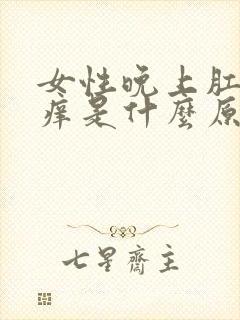 女性晚上肛
痒是什麼原
七星齋主